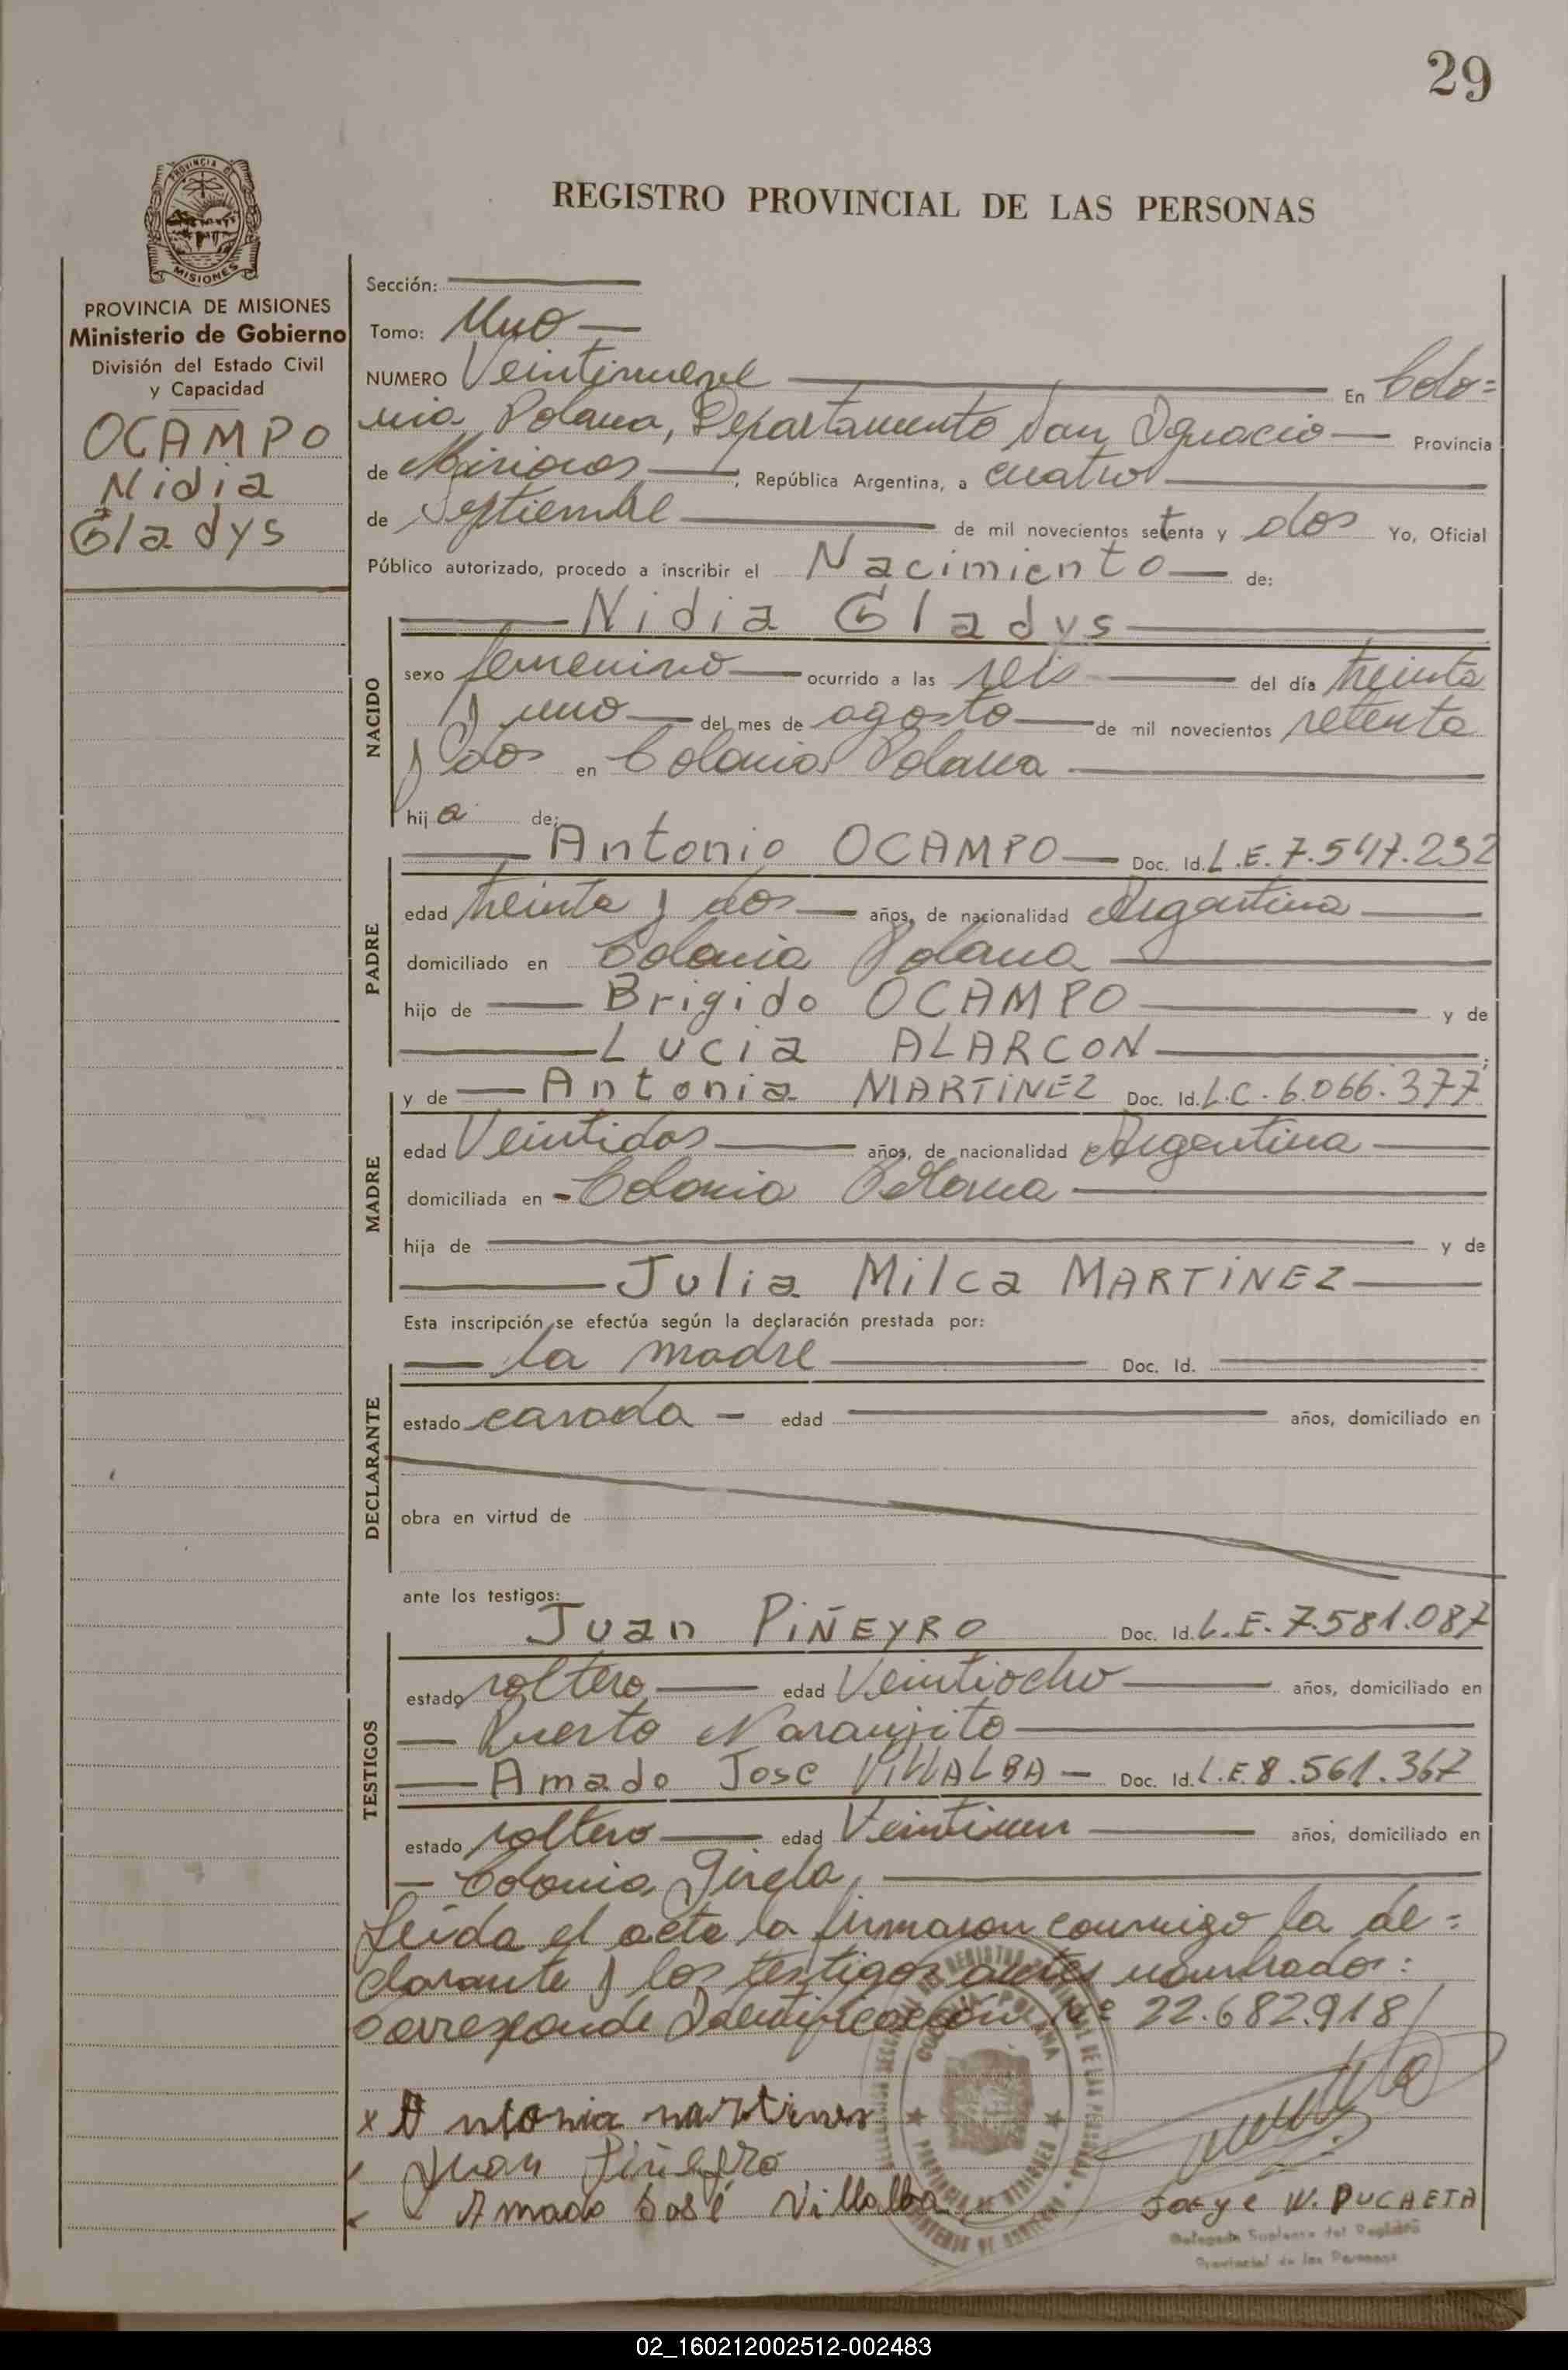 29
PROVINCIA DE
MISIONES
REGISTRO PROVINCIAL DE LAS PERSONAS
PROVINCIA DE MISIONES
Ministerio de Gobierno
División del Estado Civil
y Capacidad
OCAMPO
Nidia
Gladys
Sección:
Tomo: Uno
NUMERO Veintinueve En Colo=
nia Polana, Departamento San Ignacio Provincia
de Misiones, República Argentina, a cuatro
de Septiembre de mil novecientos setenta y dos Yo, Oficial
Público autorizado, procedo a inscribir el Nacimiento de:
NACIDO
Nidia Gladys
sexo femenino ocurrido a las seis del día treinta
y uno del mes de agosto de mil novecientos setenta
y dos en Colonia Polana
hija de:
PADRE
Antonio OCAMPO Doc. Id. L.E. 7.547.232
edad treinta y dos años, de nacionalidad Argentina
domiciliado en Colonia Polana
hijo de Brigido OCAMPO y de
Lucia ALARCON
MADRE
y de Antonia MARTINEZ Doc. Id. L.C. 6.066.377
edad Veintidos años, de nacionalidad Argentina
domiciliada en Colonia Polana
hija de y de
Julia Milca MARTINEZ
Esta inscripción se efectúa según la declaración prestada por:
DECLARANTE
la madre Doc. Id.
estado casada edad años, domiciliado en
obra en virtud de
ante los testigos:
TESTIGOS
Juan PIÑEYRO Doc. Id. L.E. 7.581.087
estado soltero edad Veintiocho años, domiciliado en
Puerto Naranjito
Amado Jose VILLALBA Doc. Id. L.E. 8.561.367
estado soltero edad años, domiciliado en
Colonia Gisela
Leida el acta la firmaron conmigo la de=
clarante y los testigos antes nombrados:
Corresponde Identificación Nº 22.682.918
COLONIA POLANA
PROVINCIA DE MISIONES
Antonia martines
Juan Piñeyro
Amado José Villalba
Jorge W. PUCHETA
Delegado Suplente del Registro
Provincial de las Personas
02_160212002512-002483